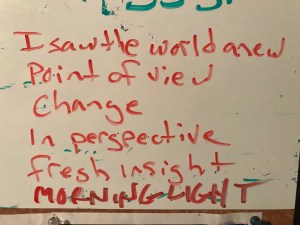 I saw the world anew
Point of view
Change
In perspective
fresh insight
MORNING LIGHT